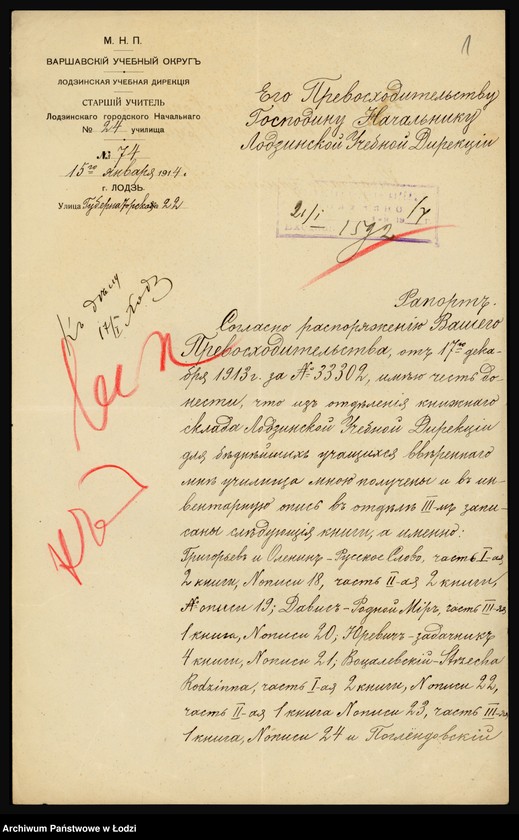 М. Н. П.
ВАРШАВСКІЙ УЧЕБНЫЙ ОКРУГЪ
ЛОДЗИНСКАЯ УЧЕБНАЯ ДИРЕКЦІЯ
СТАРШІЙ УЧИТЕЛЬ
Лодзинскаго городского Начальнаго
№ 24 училища
№ 74
15го января 1914.
г. ЛОДЗЬ
Улица Губернаторская 22
1
Его Превосходительству
Господину Начальнику
Лодзинской Учебной Дирекціи
21/I 1592/V
Къ дѣлу
17/I
Рапортъ.
Согласно распоряженію Вашего
Превосходительства, отъ 17го дека-
бря 1913 г. за № 33302, имѣю честь до-
нести, что изъ отдѣленія книжнаго
склада Лодзинской Учебной Дирекціи
для бѣднѣйшихъ учащихся ввѣреннаго
мнѣ училища мною получены и въ ин-
вентарную опись въ отдѣлѣ III-мъ запи-
саны слѣдующія книги, а именно:
Григорьевъ и Оленинъ-Русское Слово, часть I-ая
2 книги, № описи 18, часть II-ая 2 книги,
№ описи 19; Дависъ-Родной Міръ, часть III-яя
1 книга, № описи 20; Юревичъ-задачникъ
4 книги, № описи 21; Воцалевскій-Strzecha
Rodzinna, часть I-ая 2 книги, № описи 22,
часть II-ая 1 книга № описи 23, часть III-яя
1 книга, № описи 24 и Поглендовскій
Archiwum Państwowe w Łodzi